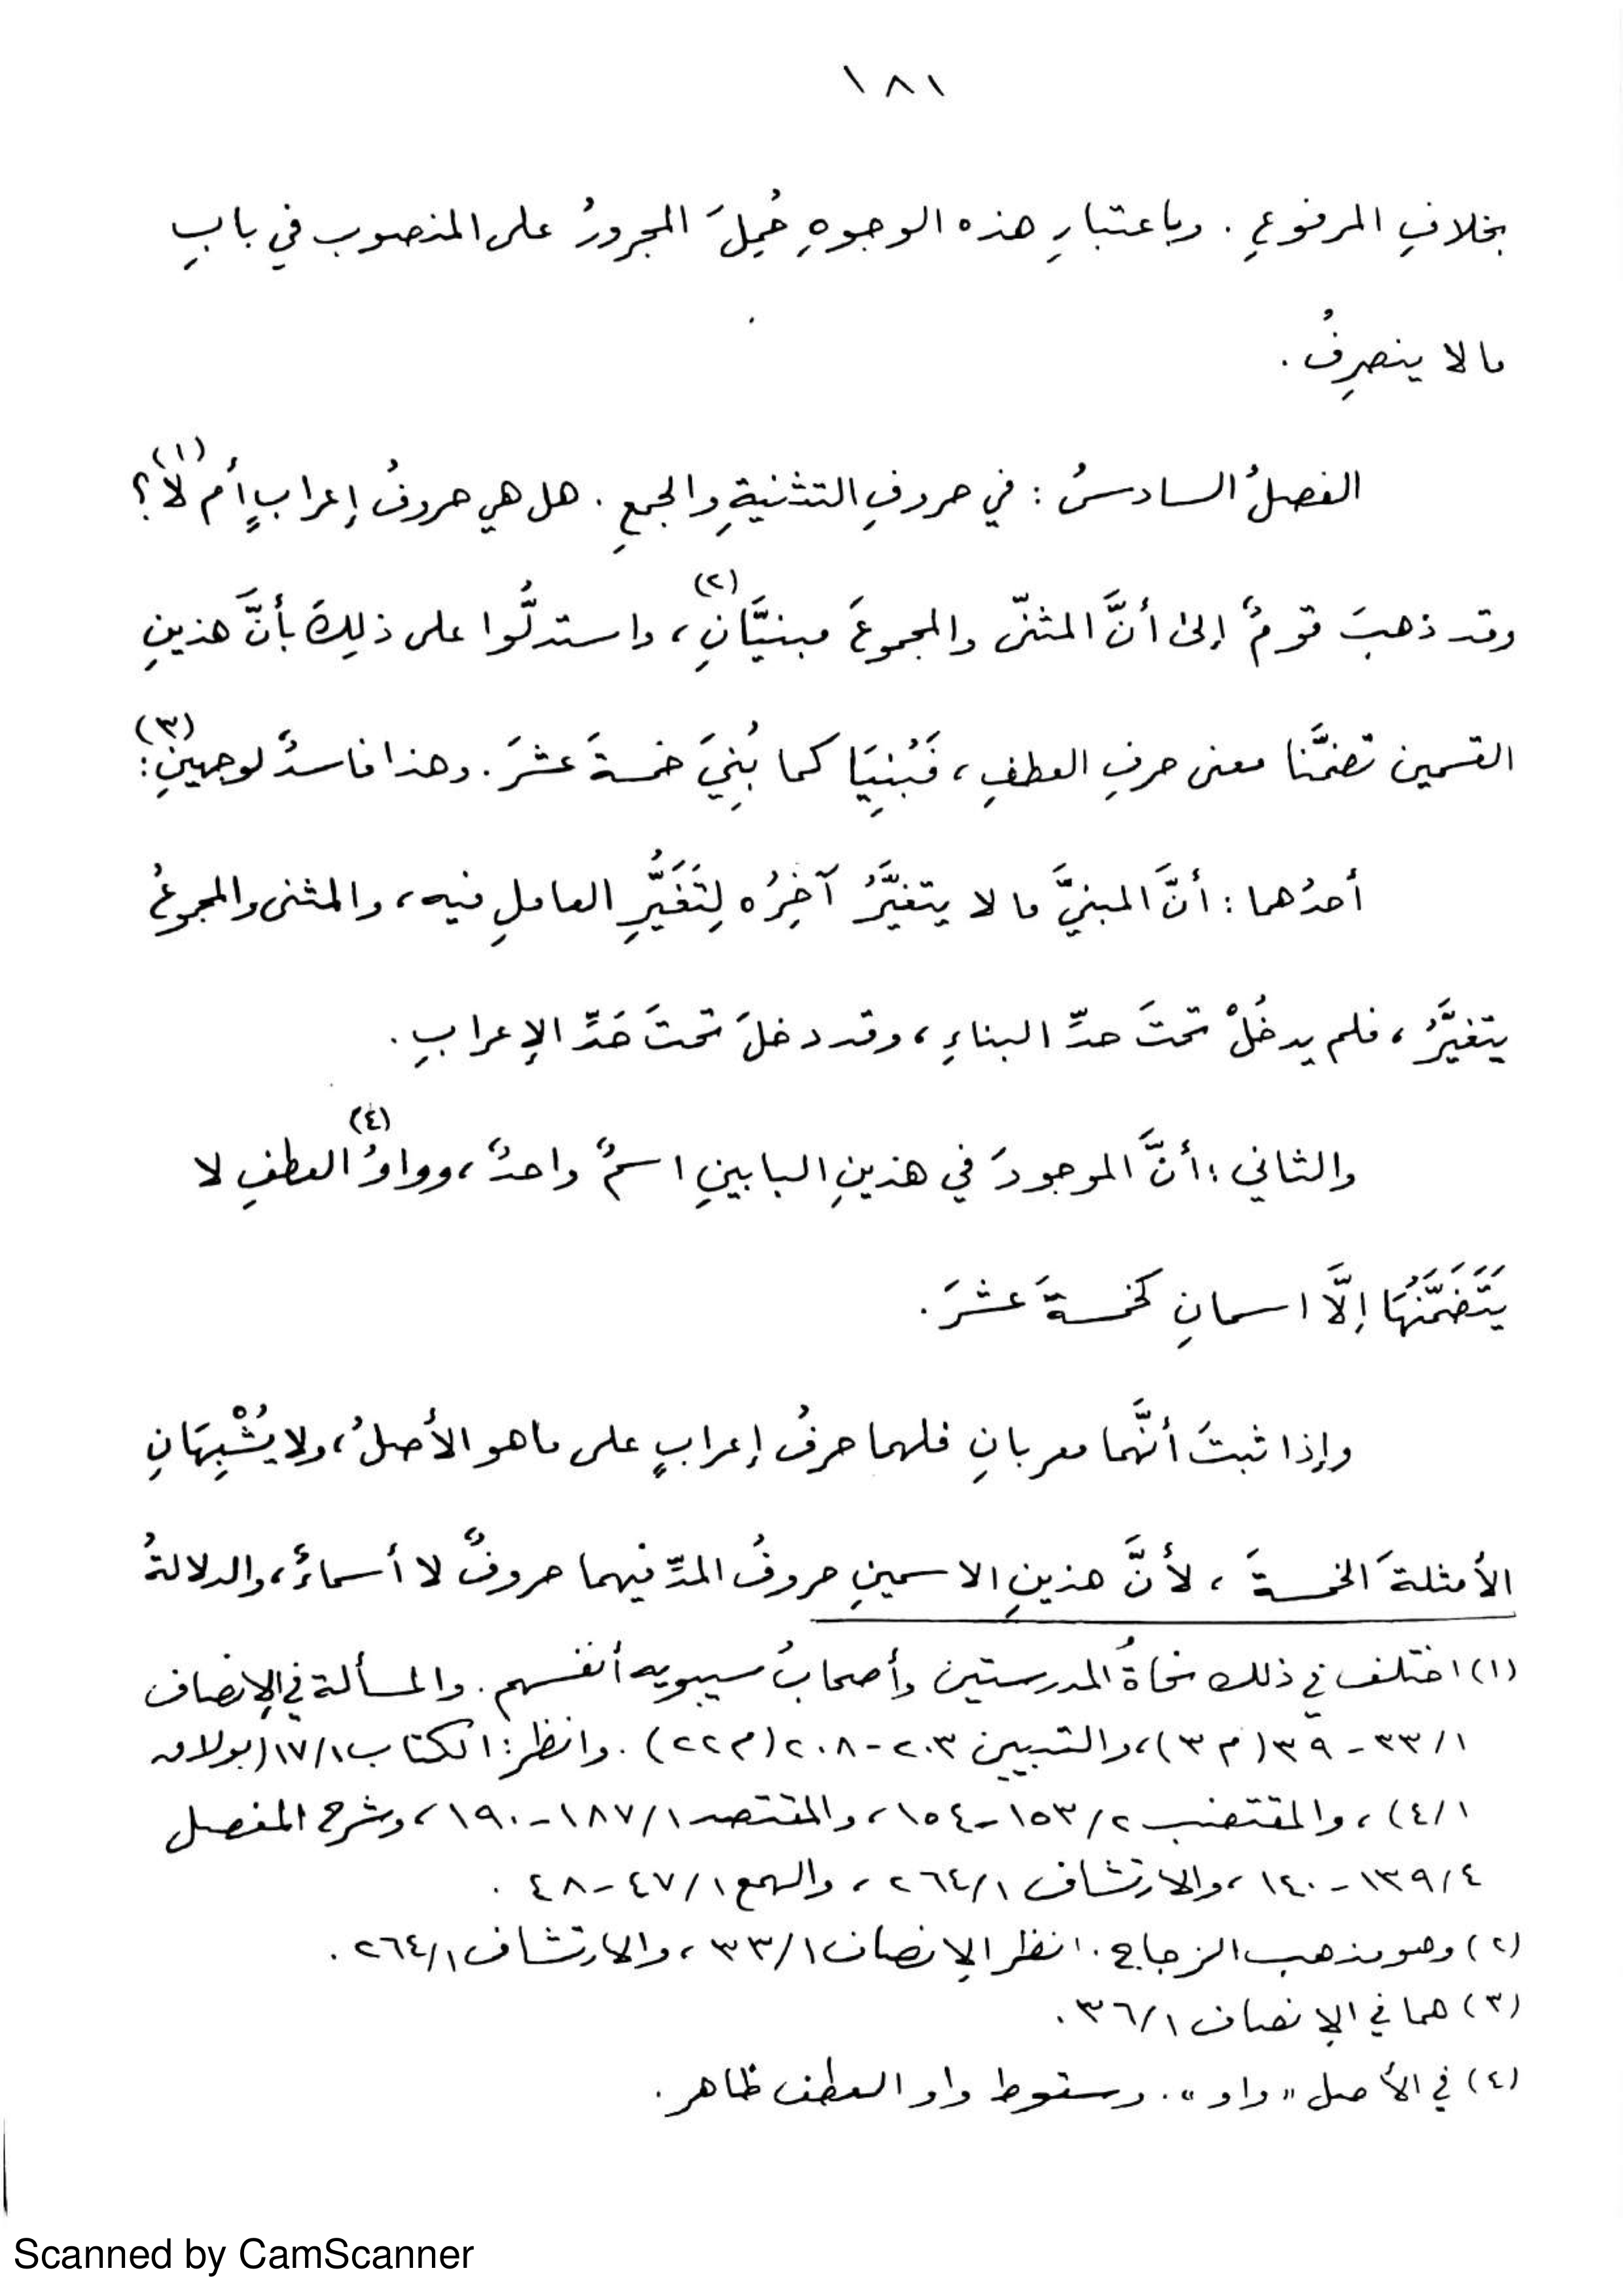 ١٨١
بخلافِ المرفوعِ . وباعتبارِ هذه الوجوهِ حُمِلَ المجرورُ على المنصوب في بابِ
مالا ينصرِفُ .
الفصلُ السادسُ : في حروفِ التثنيةِ والجمعِ . هل هي حروفُ إعرابٍ أم لا(١)؟
وقد ذهبَ قومٌ إلى أنَّ المثنّى والمجموعَ مبنيَّانِ(٢)، واستدلُّوا على ذلِكَ بأنَّ هذينِ
القسمين تضمَّنا معنى حرفِ العطفِ ، فَبُنِيَا كما بُنِيَ خمسةَ عشرَ . وهذا فاسدٌ لوجهينِ(٣):
أحدُهما : أنَّ المبنيَّ ما لا يتغيَّرُ آخِرُه لِتَغَيُّرِ العاملِ فيه ، والمثنى والمجموعُ
يتغيَّرُ ، فلم يدخُلْ تحتَ حدِّ البناءِ ، وقد دخلَ تحتَ حَدِّ الإعرابِ .
والثاني : أنَّ الموجودَ في هذينِ البابينِ اسمٌ واحدٌ ، وواوُ(٤) العطفِ لا
يَتَضَمَّنُهَا إلَّا اسمانِ كخمسةَ عشرَ .
وإذا ثبتَ أنَّهما معربانِ فلهما حرفُ إعرابٍ على ماهو الأصلُ ، ولا يُشْبِهَانِ
الأمثلةَ الخمسةَ ، لأنَّ هذينِ الاسمينِ حروفُ المدِّ فيهما حروفٌ لا أسماءٌ ، والدلالةُ
(١) اختلف في ذلك نحاةُ المدرستين وأصحابُ سيبويه أنفسهم . والمسألة في الإنصاف
٣٣/١ - ٣٩ (م ٣) ، والتبيين ٢٠٣ - ٢٠٨ (م ٢٢) . وانظر : الكتاب ١٧/١ (بولاق
٤/١) ، والمقتضب ١٥٣/٢ - ١٥٤ ، والمقتصد ١٨٧/١ - ١٩٠ ، وشرح المفصل
١٣٩/٤ - ١٤٠ ، والارتشاف ٢٦٤/١ ، والهمع ٤٧/١ - ٤٨ .
(٢) وهو مذهب الزجاج . انظر الإنصاف ٣٣/١ ، والارتشاف ٢٦٤/١ .
(٣) هما في الإنصاف ٣٦/١ .
(٤) في الأصل «واو» . وسقوط واو العطف ظاهر .
Scanned by CamScanner